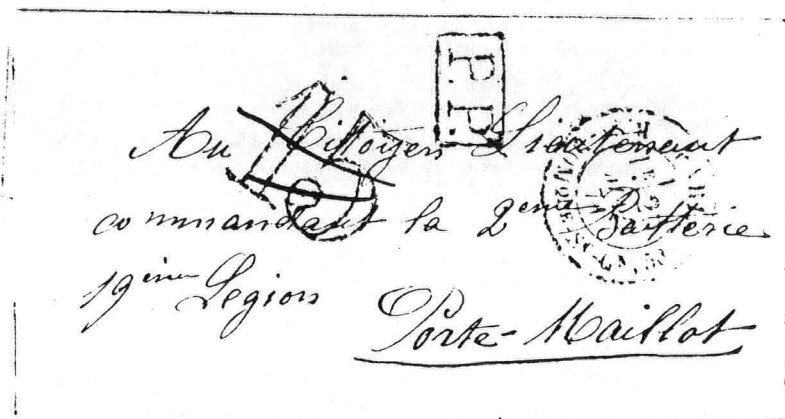 P.P.
Au Citoyen Lieutenant
commandant la 2eme Batterie
19eme Legion
Porte-Maillot